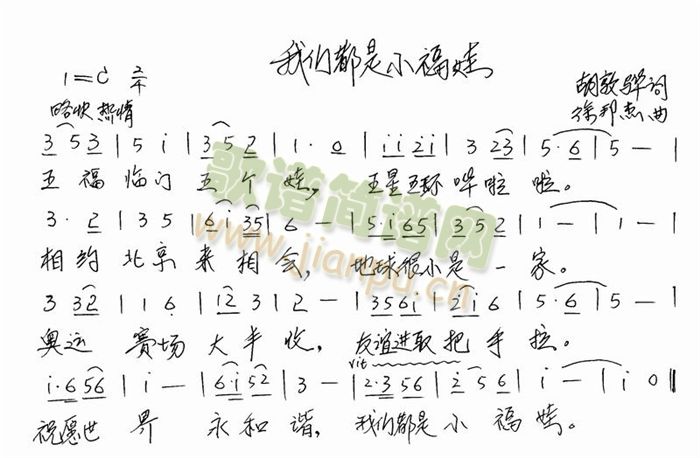 我们都是小福娃
1=C 2/4
胡敦骅词
略快 热情
徐邦杰曲
3 5 3 | 5 i | 3 5 2 | 1 · 0 | i i 2 i | 3 2 3 | 5 · 6 | 5 — |
五福临门五个娃，五星五环哗啦啦。
3 · 2 | 3 5 | 6 · i 3 5 | 6 — | 5 · i 6 5 | 3 5 2 | 1 — | 1 — |
相约北京来相会，地球很小是一家。
3 3 2 | 1 1 6 | 1 2 3 1 | 2 — | 3 5 6 i | 2 i 6 | 5 · 6 | 5 — |
奥运赛场大丰收，友谊进取把手拉。
vit
i · 6 5 6 | i — | 6 · i 5 2 | 3 — | 2 · 3 5 6 | 2 5 6 | i — | i 0 ‖
祝愿世界永和谐，我们都是小福娃。
歌谱简谱网
www.jianpu.cn